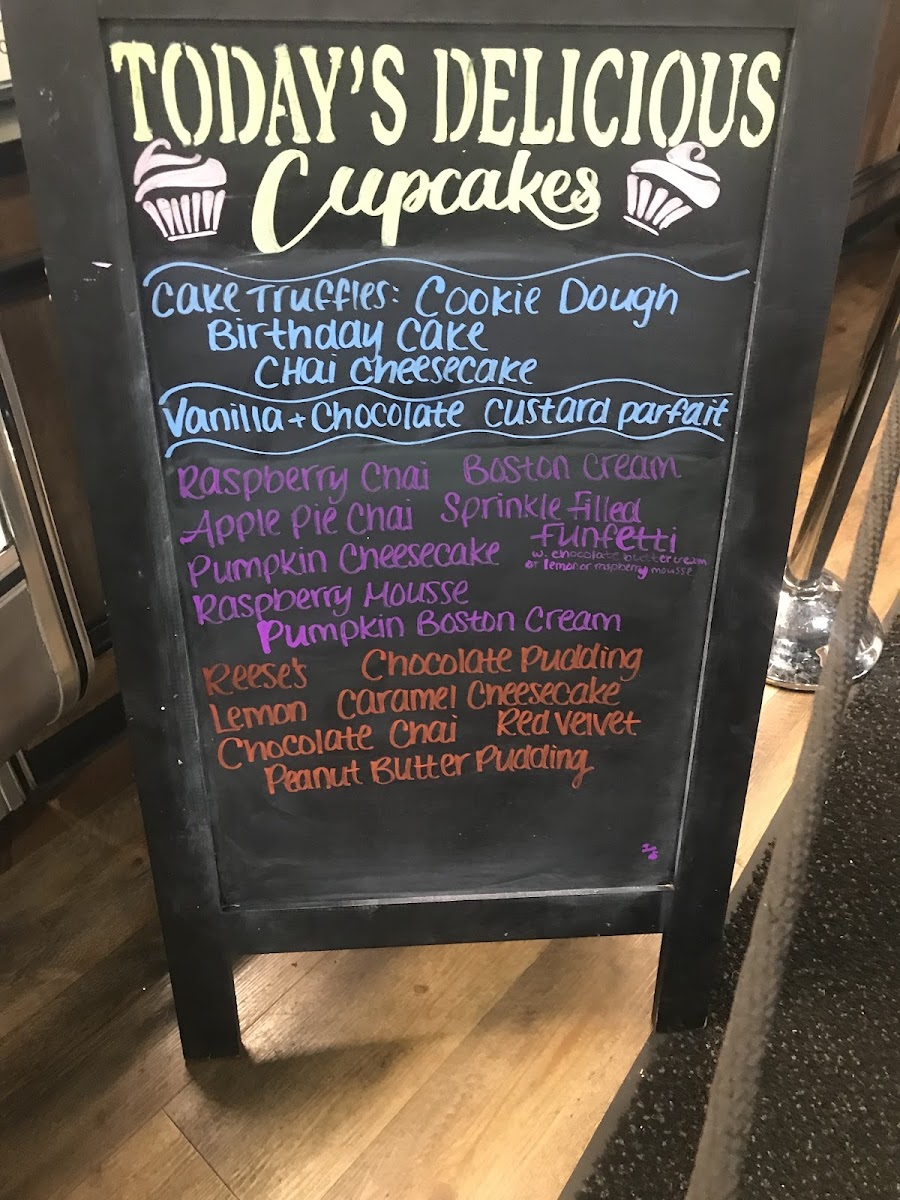 TODAY'S DELICIOUS
Cupcakes
Cake Truffles: Cookie Dough
Birthday Cake
Chai Cheesecake
Vanilla + Chocolate Custard parfait
Raspberry Chai Boston Cream
Apple Pie Chai Sprinkle Filled
Funfetti
w. chocolate buttercream
or lemon or raspberry mousse
Pumpkin Cheesecake
Raspberry Mousse
Pumpkin Boston Cream
Reese's Chocolate Pudding
Lemon Caramel Cheesecake
Chocolate Chai Red Velvet
Peanut Butter Pudding